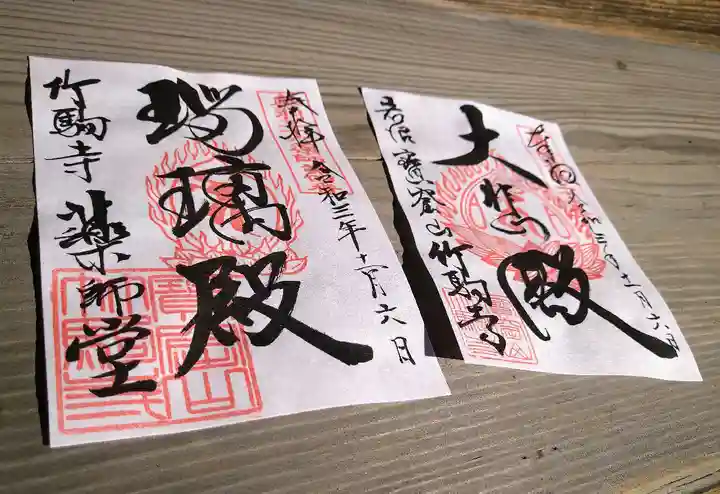 奉拝 令和三年十一月六日
瑠璃殿
竹駒寺 薬師堂
奉拝 令和三年十一月六日
大悲殿
岩沼 寳窟山 竹駒寺